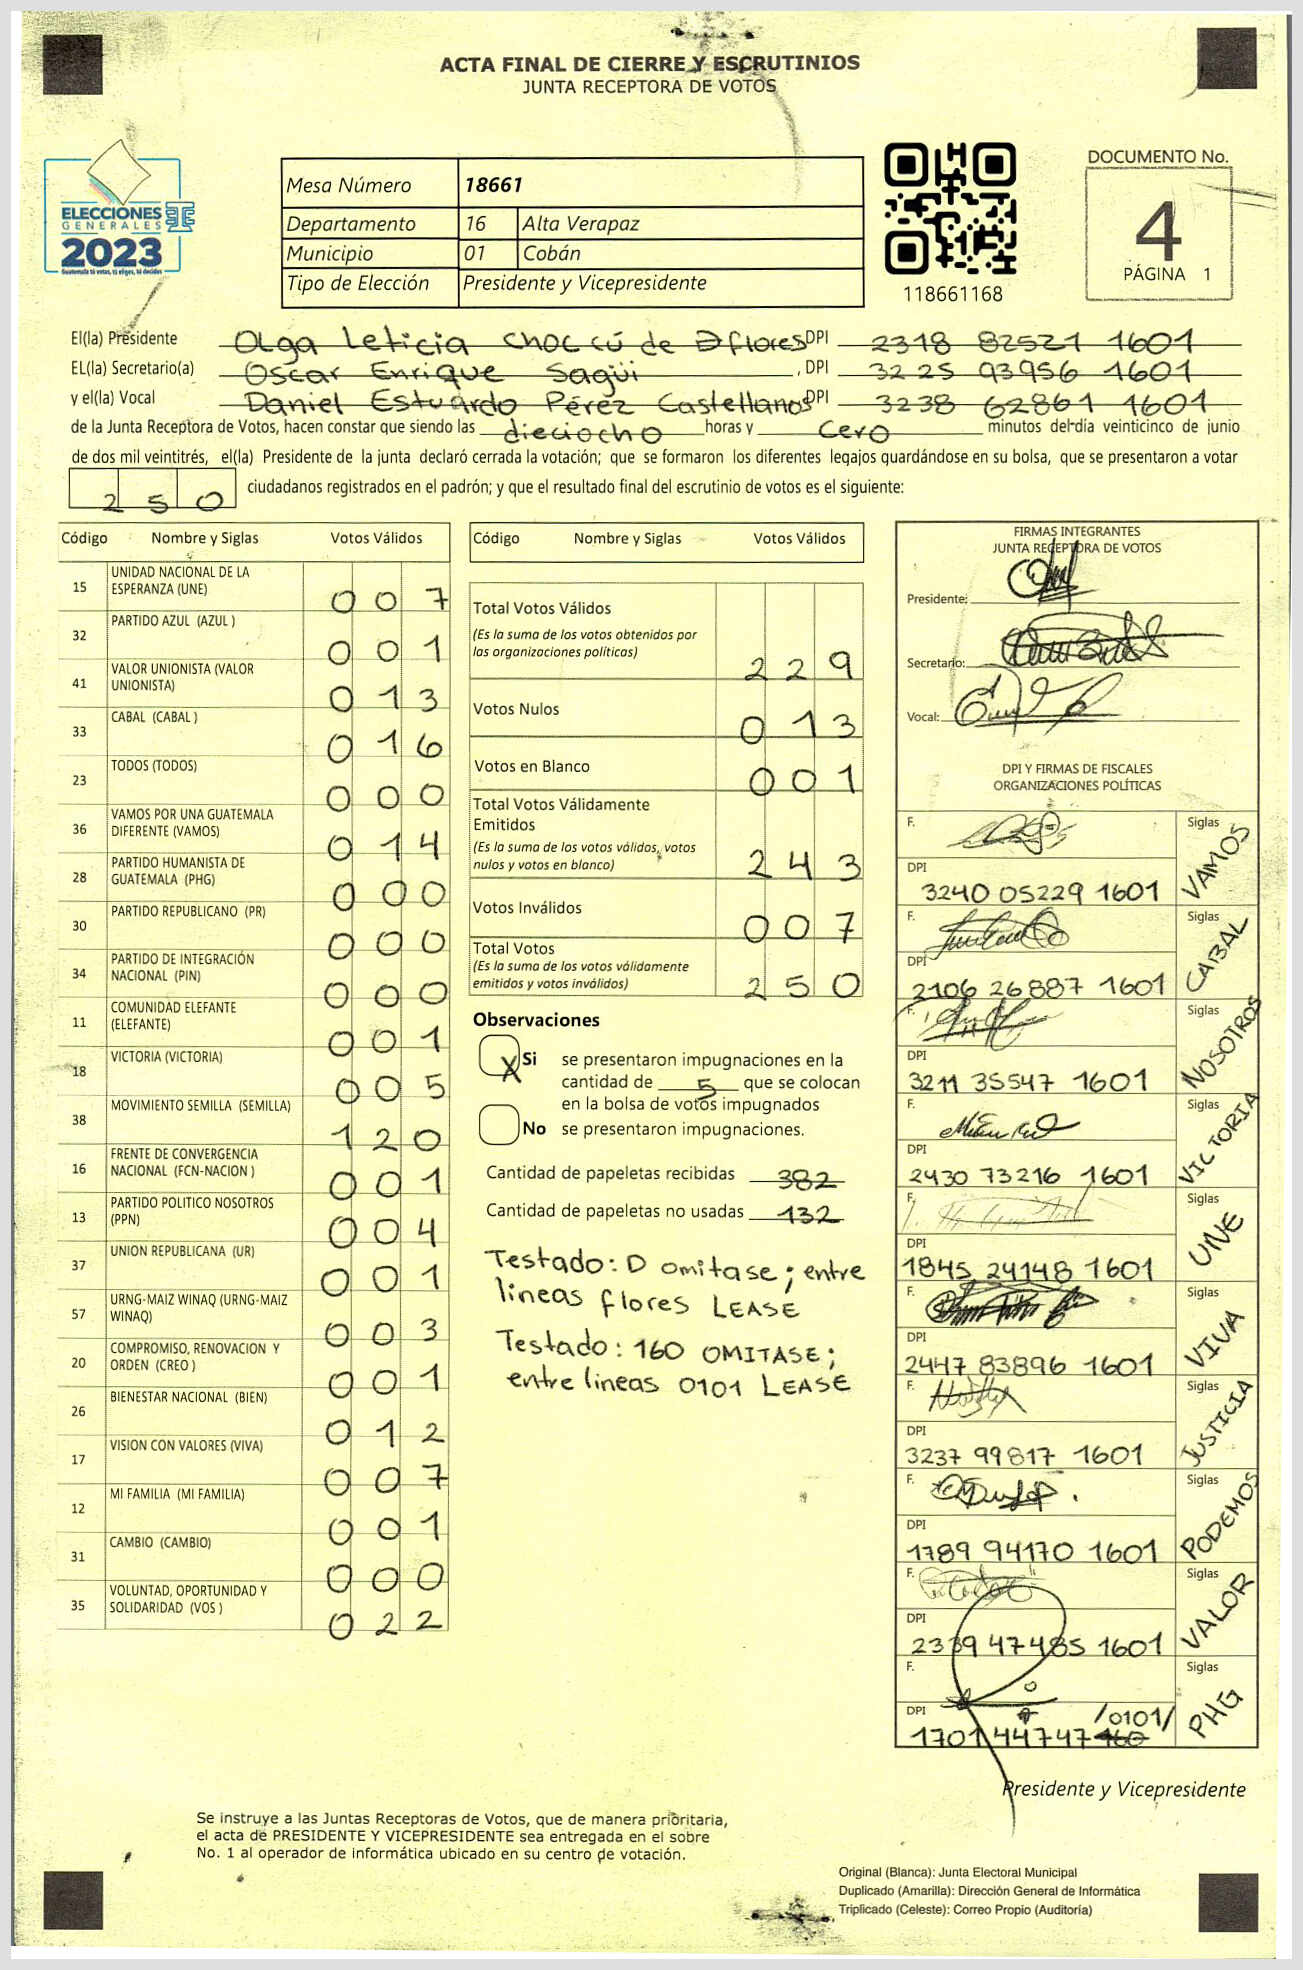 ACTA FINAL DE CIERRE Y ESCRUTINIOS
JUNTA RECEPTORA DE VOTOS
ELECCIONES
GENERALES
2023
Guatemala tú votas, tú eliges, tú decides
Mesa Número 18661
Departamento 16 Alta Verapaz
Municipio 01 Cobán
Tipo de Elección Presidente y Vicepresidente
118661168
DOCUMENTO No.
4
PÁGINA 1
El(la) Presidente Olga Leticia Choc cú de D flores DPI 2318 82521 1601
EL(la) Secretario(a) Oscar Enrique Sagüi , DPI 3225 93956 1601
y el(la) Vocal Daniel Estuardo Pérez Castellanos DPI 3238 62861 1601
de la Junta Receptora de Votos, hacen constar que siendo las dieciocho horas y cero minutos del día veinticinco de junio
de dos mil veintitrés, el(la) Presidente de la junta declaró cerrada la votación; que se formaron los diferentes legajos guardándose en su bolsa, que se presentaron a votar
250 ciudadanos registrados en el padrón; y que el resultado final del escrutinio de votos es el siguiente:
Código Nombre y Siglas Votos Válidos
15 UNIDAD NACIONAL DE LA ESPERANZA (UNE) 007
32 PARTIDO AZUL (AZUL ) 001
41 VALOR UNIONISTA (VALOR UNIONISTA) 013
33 CABAL (CABAL ) 016
23 TODOS (TODOS) 000
36 VAMOS POR UNA GUATEMALA DIFERENTE (VAMOS) 014
28 PARTIDO HUMANISTA DE GUATEMALA (PHG) 000
30 PARTIDO REPUBLICANO (PR) 000
34 PARTIDO DE INTEGRACIÓN NACIONAL (PIN) 000
11 COMUNIDAD ELEFANTE (ELEFANTE) 001
18 VICTORIA (VICTORIA) 005
38 MOVIMIENTO SEMILLA (SEMILLA) 120
16 FRENTE DE CONVERGENCIA NACIONAL (FCN-NACION ) 001
13 PARTIDO POLITICO NOSOTROS (PPN) 004
37 UNION REPUBLICANA (UR) 001
57 URNG-MAIZ WINAQ (URNG-MAIZ WINAQ) 003
20 COMPROMISO, RENOVACION Y ORDEN (CREO ) 001
26 BIENESTAR NACIONAL (BIEN) 012
17 VISION CON VALORES (VIVA) 007
12 MI FAMILIA (MI FAMILIA) 001
31 CAMBIO (CAMBIO) 000
35 VOLUNTAD, OPORTUNIDAD Y SOLIDARIDAD (VOS ) 022
Código Nombre y Siglas Votos Válidos
Total Votos Válidos
(Es la suma de los votos obtenidos por
las organizaciones políticas) 229
Votos Nulos 013
Votos en Blanco 001
Total Votos Válidamente
Emitidos
(Es la suma de los votos válidos, votos
nulos y votos en blanco) 243
Votos Inválidos 007
Total Votos
(Es la suma de los votos válidamente
emitidos y votos inválidos) 250
Observaciones
X Si se presentaron impugnaciones en la
cantidad de 5 que se colocan
en la bolsa de votos impugnados
No se presentaron impugnaciones.
Cantidad de papeletas recibidas 382
Cantidad de papeletas no usadas 132
Testado: D omitase; entre
lineas flores LEASE
Testado: 160 OMITASE;
entre lineas 0101 LEASE
FIRMAS INTEGRANTES
JUNTA RECEPTORA DE VOTOS
Presidente:
Secretario:
Vocal:
DPI Y FIRMAS DE FISCALES
ORGANIZACIONES POLÍTICAS
F. Siglas VAMOS
DPI
3240 05229 1601
F. Siglas CABAL
DPI
2106 26887 1601
F. Siglas NOSOTROS
DPI
3211 35547 1601
F. Siglas VICTORIA
DPI
2430 73216 1601
F. Siglas UNE
DPI
1845 24148 1601
F. Siglas VIVA
DPI
2447 83896 1601
F. Siglas JUSTICIA
DPI
3237 99817 1601
F. Siglas PODEMOS
DPI
1789 94170 1601
F. Siglas VALOR
DPI
2339 47485 1601
F. Siglas PHG
DPI /0101/
1701 44747 160
Presidente y Vicepresidente
Se instruye a las Juntas Receptoras de Votos, que de manera prioritaria,
el acta de PRESIDENTE Y VICEPRESIDENTE sea entregada en el sobre
No. 1 al operador de informática ubicado en su centro de votación.
Original (Blanca): Junta Electoral Municipal
Duplicado (Amarilla): Dirección General de Informática
Triplicado (Celeste): Correo Propio (Auditoría)